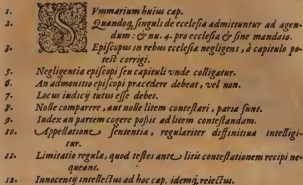 1. SVmmarium huius cap.
2. Quandoq, singuli de ecclesia admittuntur ad agen-
dum: & nu. 4. pro ecclesia & sine mandato.
3. Episcopus in rebus ecclesiæ negligens, à capitulo po-
test corrigi.
5. Negligentia episcopi seu capituli vnde colligatur.
6. An admonitio episcopi præcedere debeat, vel non.
7. Locus iudicij tutus esse debet.
8. Nolle comparere, aut nolle litem contestari, paria sunt.
9. Iudex an partem cogere possit ad litem contestandam.
10. Appellatione sententia, regulariter diffinitiua intelligi-
tur.
11. Limitatio regula, quod testes ante litis contestationem recipi ne-
queant.
12. Innocentij intellectus ad hoc cap. idemq, reiectus.